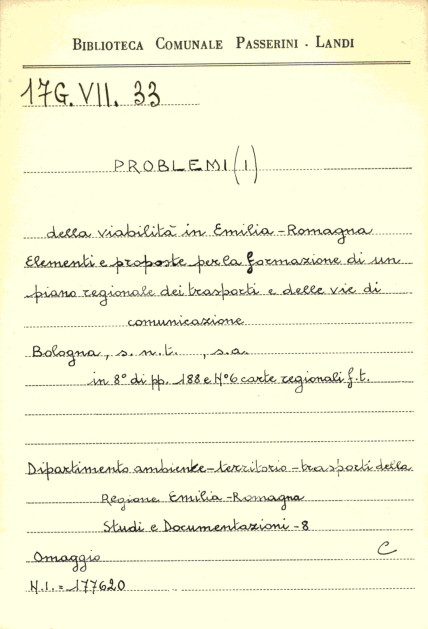 BIBLIOTECA COMUNALE PASSERINI - LANDI
17G. VII. 33
PROBLEMI (I)
della viabilità in Emilia-Romagna
Elementi e proposte per la formazione di un
piano regionale dei trasporti e delle vie di
comunicazione
Bologna, s. n. t. , s.a.
in 8° di pp. 188 e N°6 carte regionali f.t.
Dipartimento ambiente-territorio-trasporti della
Regione Emilia-Romagna
Studi e Documentazioni -8
Omaggio C
N.I. = 177620